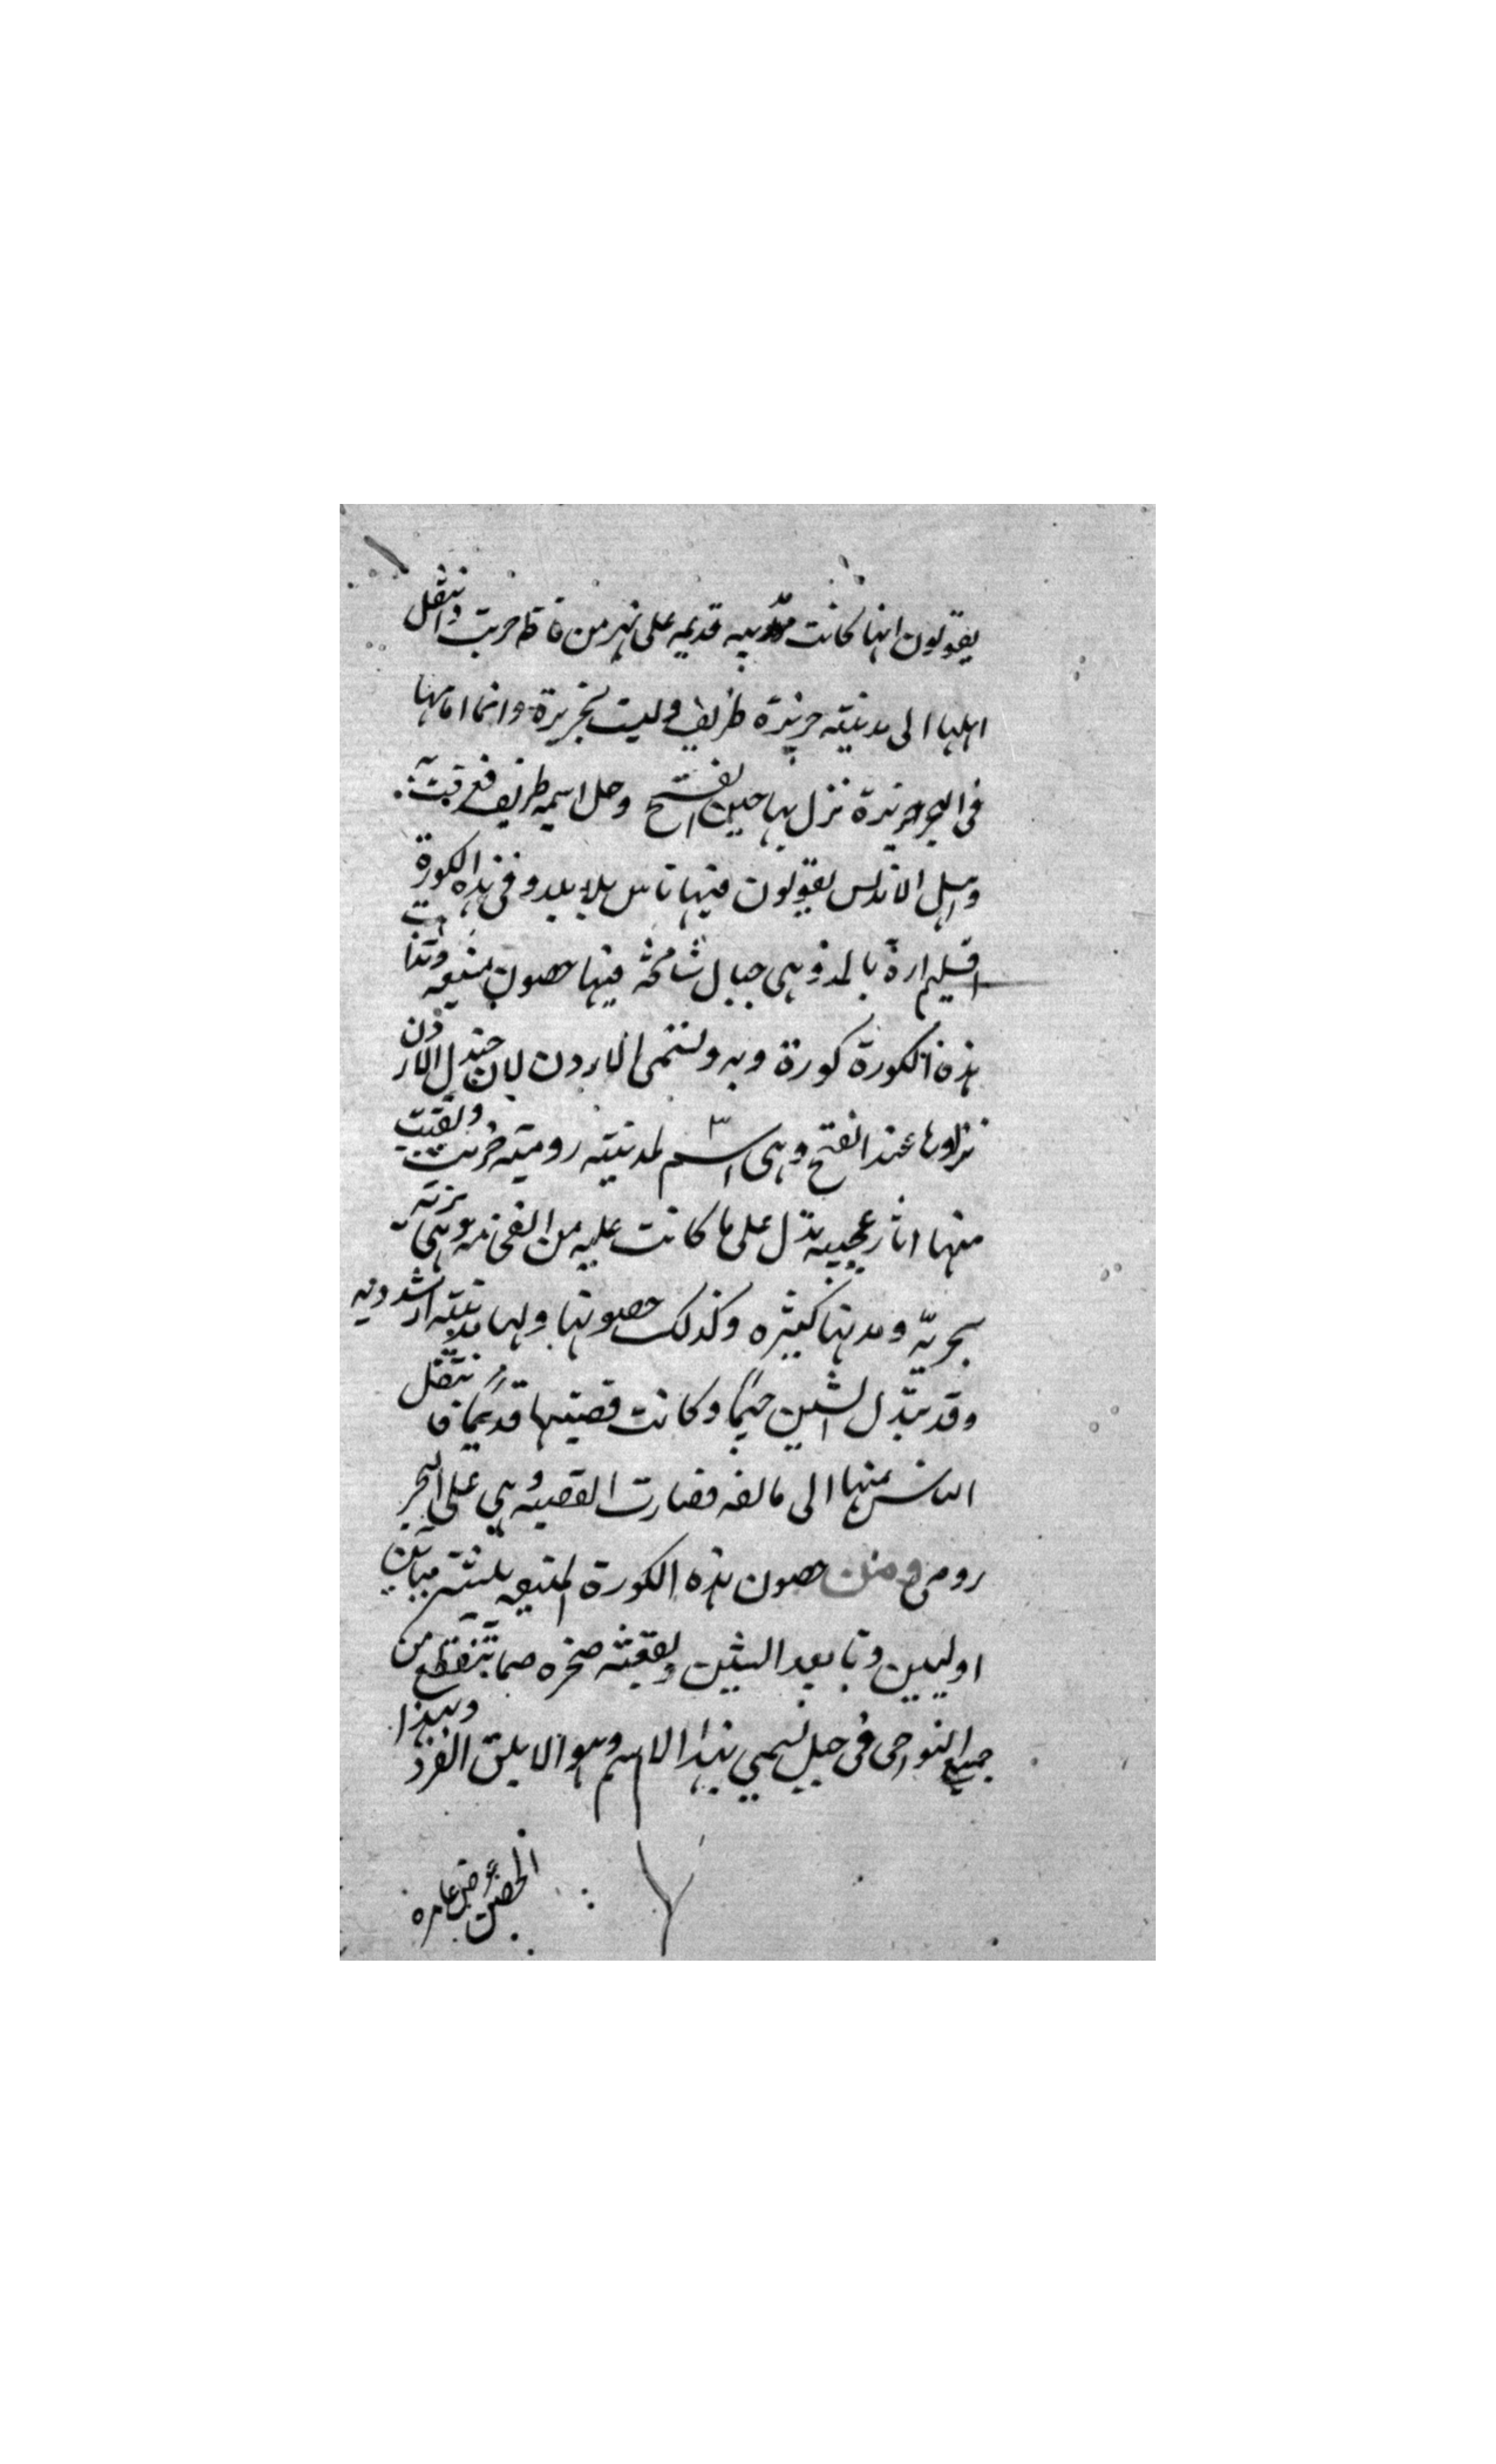 يقولون انها كانت مدينه قديمه على نهر من فاظ خربت وانتقل
اهلها الى مدينته جزيرة طريف وليت بجزيرة وانما امامها
فى البحر جزيرة نزل بها حين الفتح وحل اسمه طريف فعرفت به
واهل الاندلس يقولون فيها ناس بلا بلد وفى هذه الكورة
اقليم ارة بالمد وهى جبال شامخة فيها حصون منيعه
هذه الكورة كورة ويه وتنتمى الاردن لان جند الاردن
نزلوها عند الفتح وهى اسم لمدينته روميته خربت وبقيت
منها اثار عجيبه تدل على ما كانت عليه من الفخامه وهى بريه
بحريّه ومدنها كثيره وكذلك حصونها ولها مدينته ارشدونه
وقد تبدل الشين جيما وكانت قصبتها قديما فانتقل
الناس منها الى مالقه فصارت القصبه وهى على البحر
رومى ومن حصون هذه الكورة المنيعه ببشتر مبايين
اوليين وتا بعد الشين وبقعته صخره صما تنقطع من
جميع النواحى فى جبل تسمى بهذا الاسم وهو الابلق الفرد وبهذا
الحصن عامره